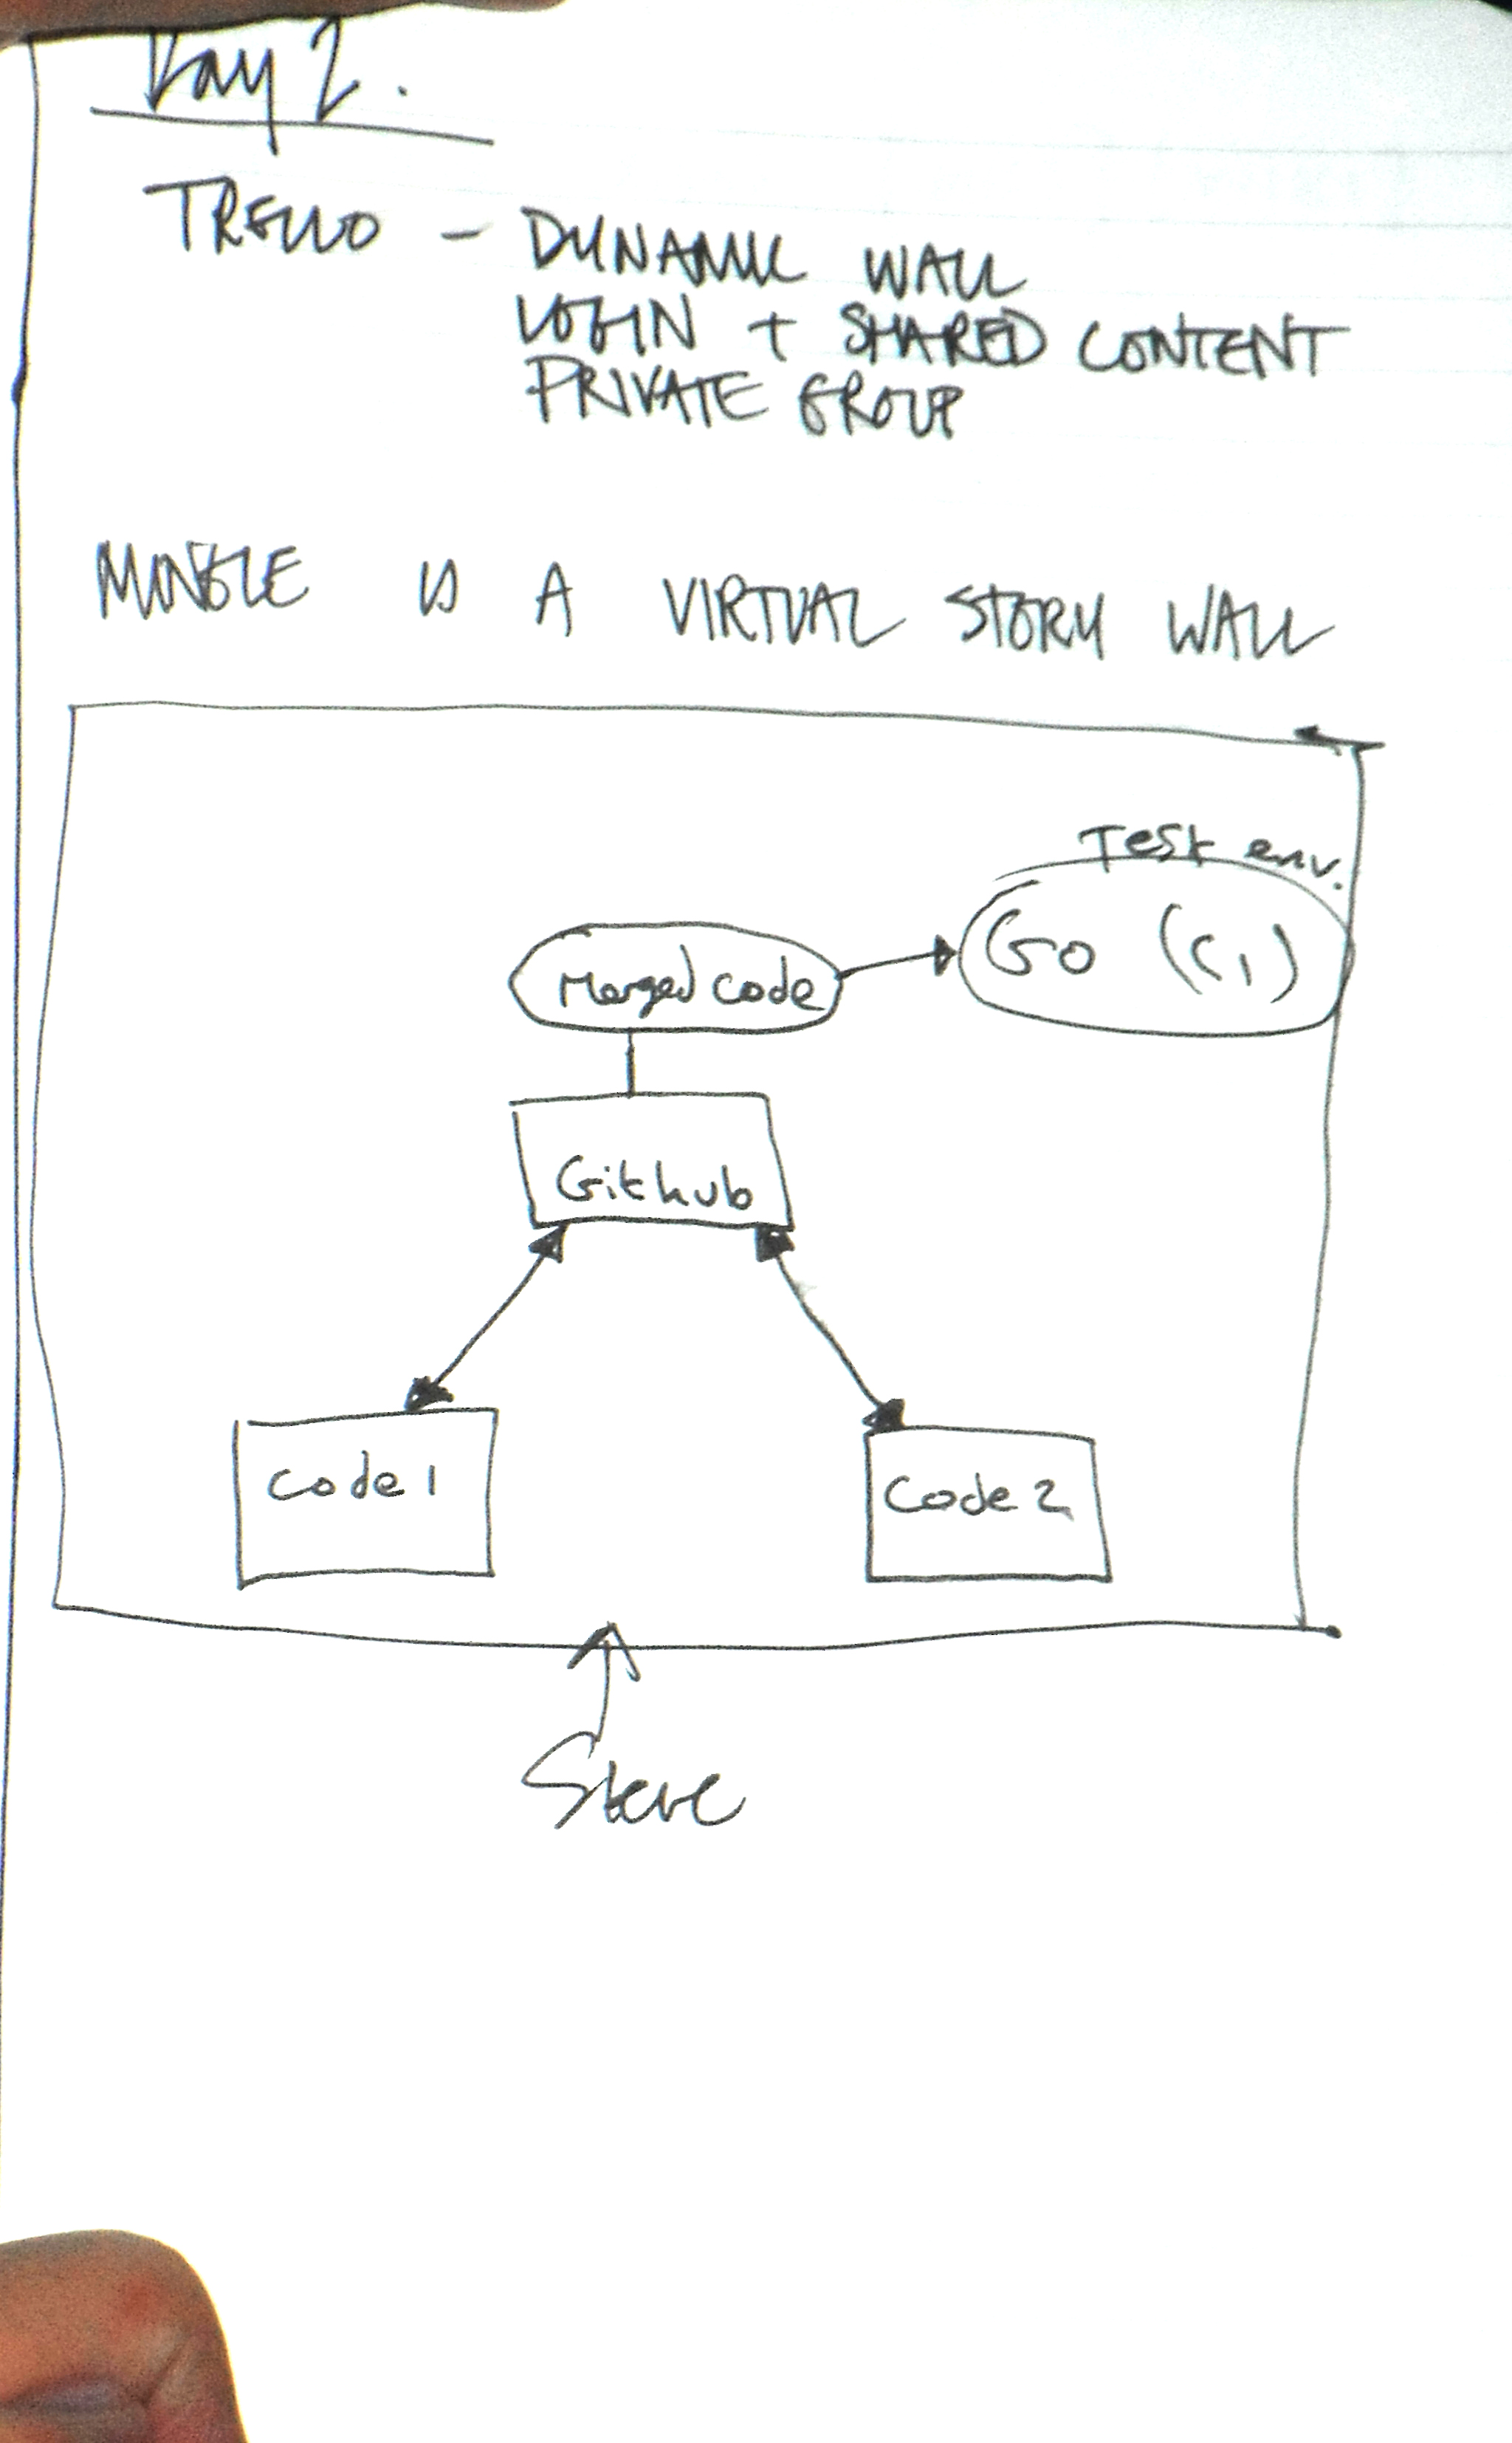 Day 2.
TRELLO - DYNAMIC WALL
LOGIN + SHARED CONTENT
PRIVATE GROUP
MINGLE IS A VIRTUAL STORY WALL
Test env.
Merged code
GO (CI)
Github
Code 1
Code 2
Steve